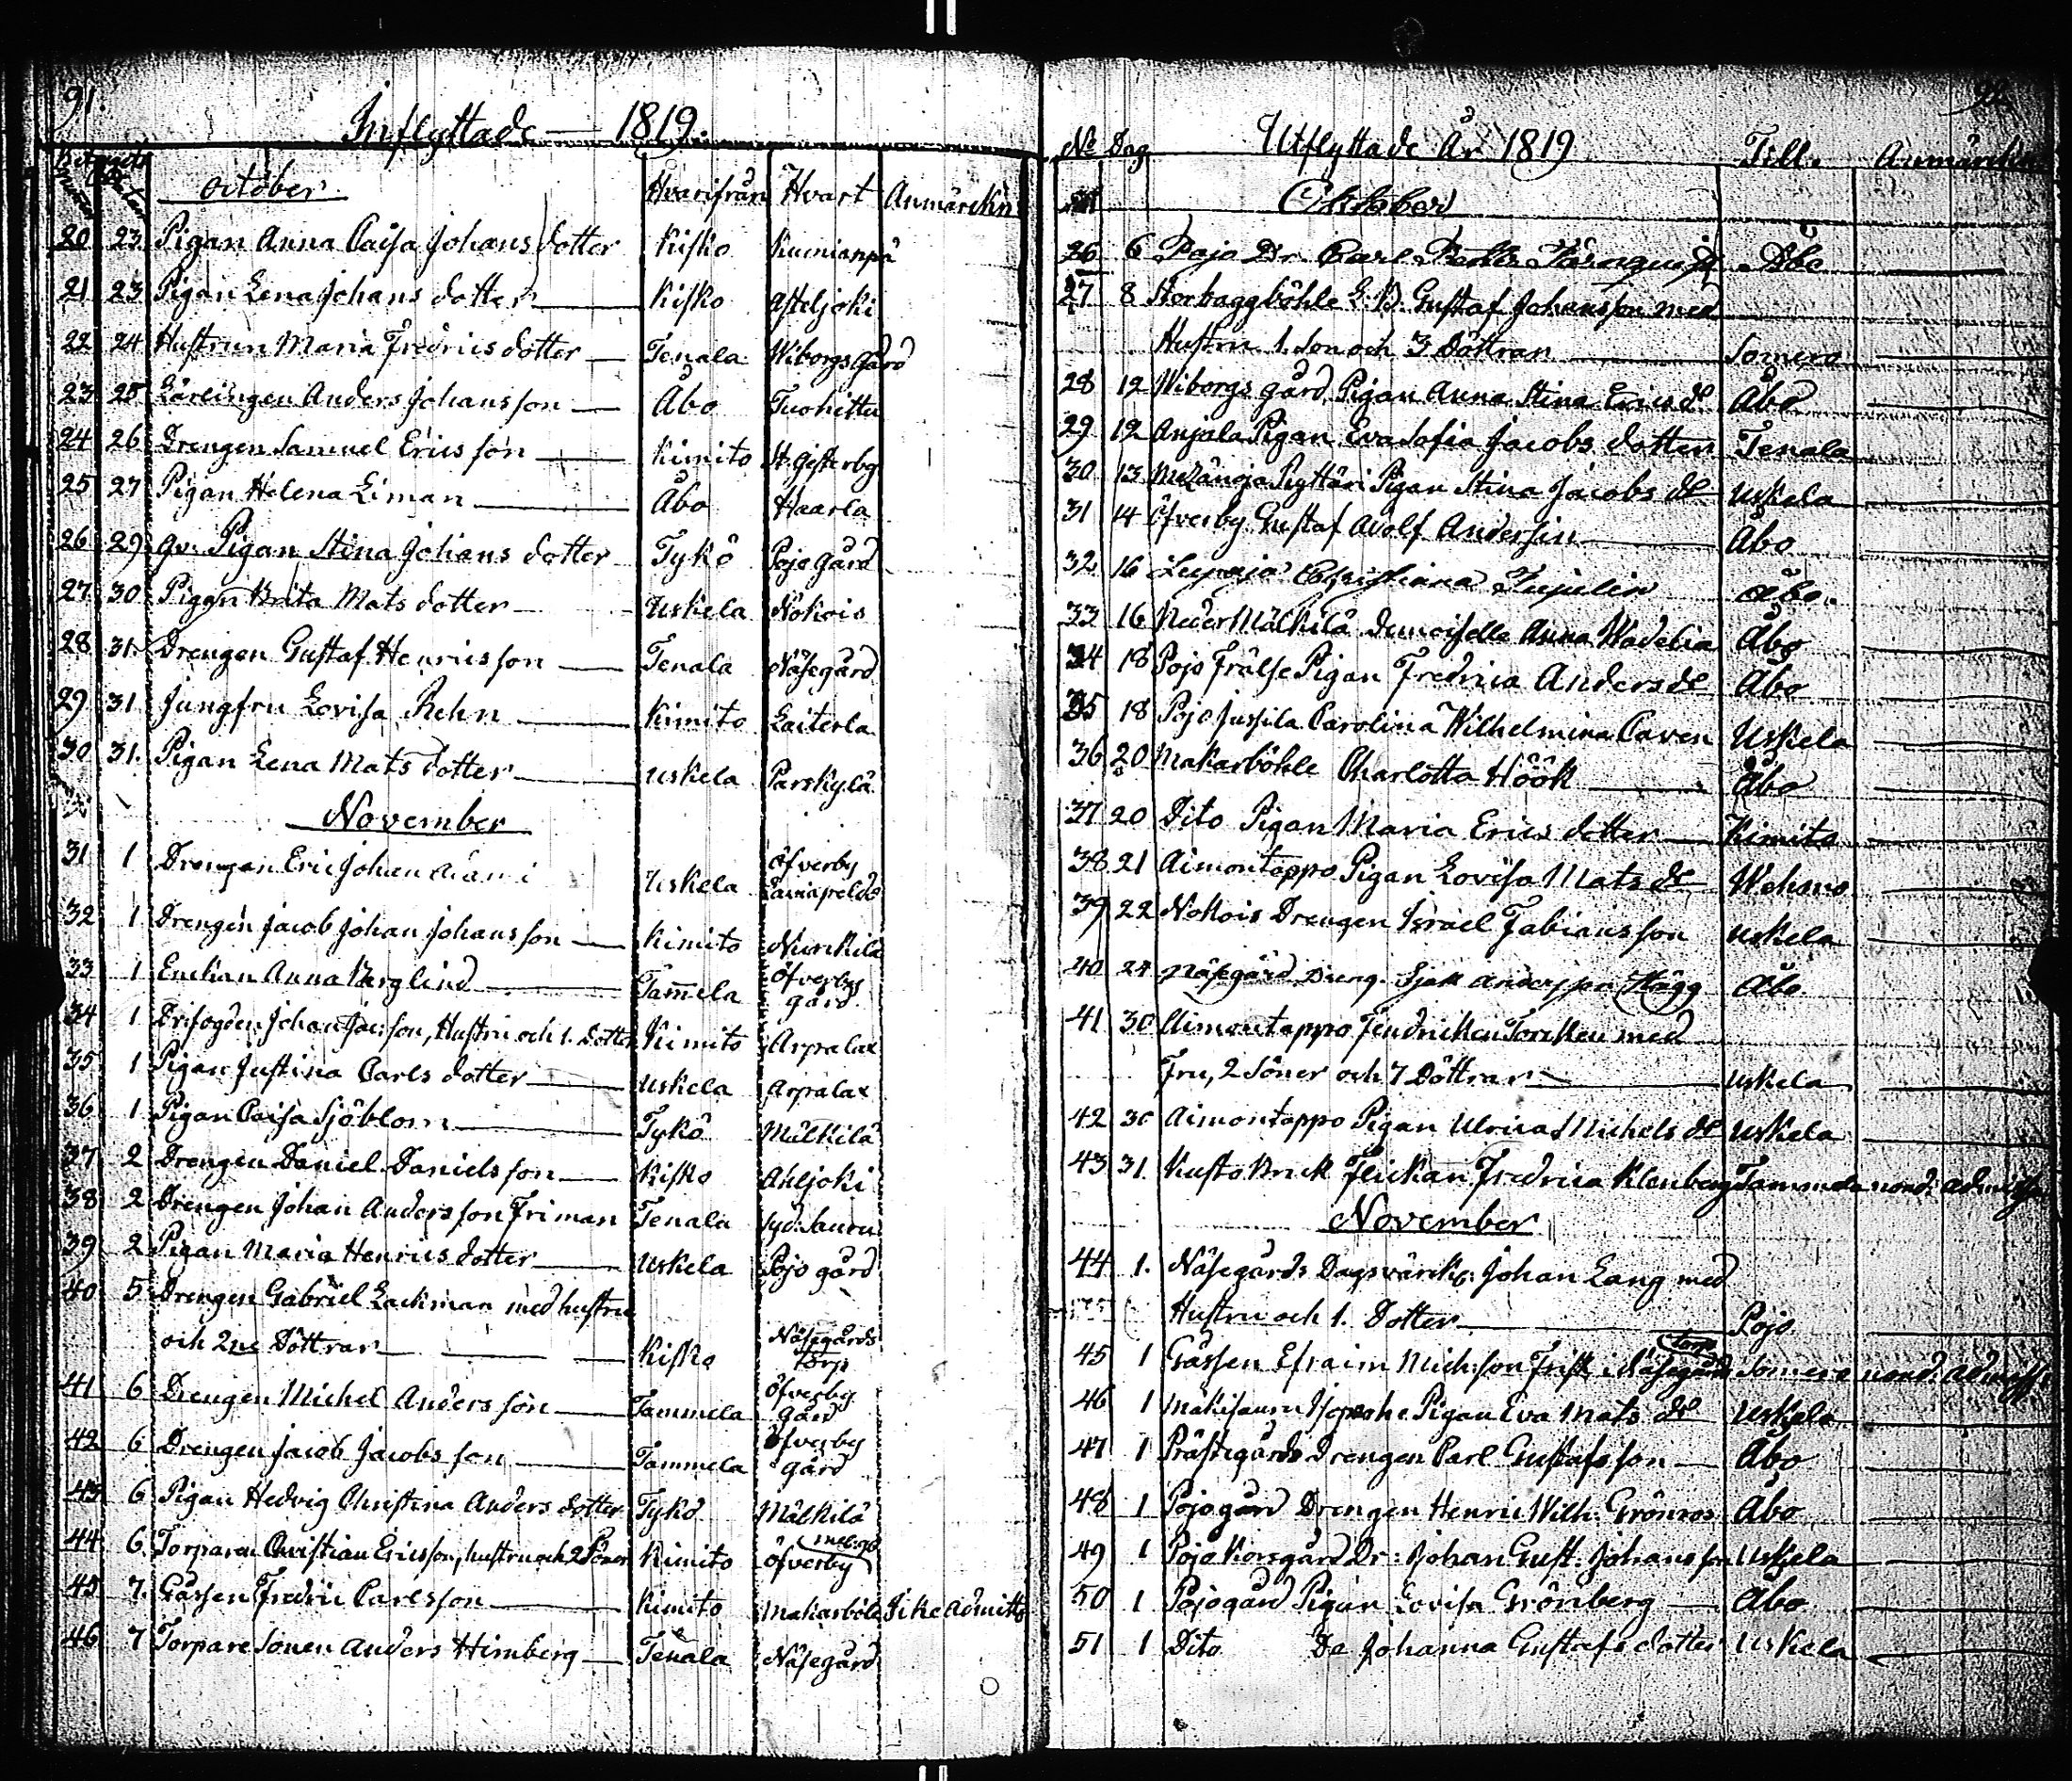 91.
Inflyttade — 1819.
October Hvarifrån Hvart Anmärckn
20 23 Pigan Anna Caisa Johans dotter Kisko Kumianpä
21 23 Pigan Lena Johans dotter Kisko Asteljoki
22 24 Hustrun Maria Fredrics dotter Tenala Wiborgs Gård
23 25 Lärlingen Anders Johansson Åbo Tuohittu
24 26 Drengen Samuel Ericsson Kimito St. Gesterby
25 27 Pigan Helena Liman Åbo Haarla
26 29 Qv: Pigan Stina Johans dotter Tykö Pojo gård
27 30 Pigan Brita Mats dotter Uskela Nokois
28 31 Drengen Gustaf Henricsson Tenala Näsegård
29 31 Jungfru Lovisa Rehn Kimito Laiterla
30 31. Pigan Lena Mats dotter Uskela Parskylä
November
31 1 Drengen Eric Johan Uskela Öfverby
32 1 Drengen Jacob Johan Johansson Kimito Nurckila
33 1 Enckan Anna Berglind Tam̄ela Öfverby gård
34 1 Johan Hustru och 1. Dotter Kimito Arpalax
35 1 Pigan Justina Carls dotter Uskela Arpalax
36 1 Pigan Caisa Sjöblom Tykö Mälkilä
37 2 Drengen Daniel Danielsson Kisko Ahljoki
38 2 Drengen Johan Andersson Friman Tenala Syd. Sauru
39 2 Pigan Maria Henrics dotter Uskela Pojo gård
40 5 Drengen Gabriel Lackman med hustru
och 2ne Döttrar Kisko Näsegårds torp
41 6 Drengen Michel Andersson Tammela Öfverby gård
42 6 Drengen Jacob Jacobsson Tammela Öfverby gård
43 6 Pigan Hedvig Christina Anders dotter Tykö Mälkilä
44 6. Torparen Christian Ericsson, hustru och 2 Söner Kimito Öfverby
45 7. Gåssen Fredric Carlsson Kimito Makarböle Icke Admitt.
46 7 Torpare Sonen Anders Himberg Tenala Näsegård
No Dag Utflyttade År 1819 Till. Anmärckn
October
26 6 Pojo Dr. Carl Åbo
27 8 Storbaggböhle Gustaf Johansson med
Hustru 1. Son och 3 Döttrar Somero
28 12 Wiborgs gård, Pigan Anna Stina Erics dr Åbo
29 12 Anjala Pigan Eva Sofia Jacobs dotter Tenala
30 13 Pigan Stina Jacobs dr Uskela
31 14 Öfverby Gustaf Adolf Andersin Åbo
32 16 Christiana Åbo.
33 16 Neder Mälkilä Demoiselle Anna Wadelia Åbo
34 18 Pojo Frälse Pigan Fredrica Anders dr Åbo
35 18 Pojo Jussila Carolina Wilhelmina Caven Uskela
36 20 Makarböhle Charlotta Höök Åbo
37 20 Dito Pigan Maria Erics dotter Kimito
38 21 Aimontappo Pigan Lovisa Mats dr Wehmo
39 22 Nokois Drengen Israel Fabiansson Uskela
40 24 Näsegård Dreng. Andersson Hägg Åbo
41 30 Aimontappo Fendricken Torcken med
Fru, 2 Söner och 7 Döttrar Uskela
42 30 Aimontappo Pigan Ulrica Michels dr Uskela
43 31. Kusto Bruk Flickan Fredrica Klenberg Tammela nond: admiss.
November
44 1. Näsegårds Dagsvärck: Johan Lang med
Hustru och 1. Dotter Pojo
45 1 Gåssen Efraim Michsson Frisk i Näsegårds torp Somero nond. admiss.
46 1 Mäkisauru Pigan Eva Mats dr Uskela
47 1 Prästegårds Drengen Carl Gustafsson Åbo
48 1 Pojogård Drengen Henric Wilh. Grönroos Åbo
49 1 Pojo Korsgård Dr: Johan Gust. Johansson Uskela
50 1 Pojogård Pigan Lovisa Grönberg Åbo
51 1 Dito De Johanna Gustafs dotter Uskela